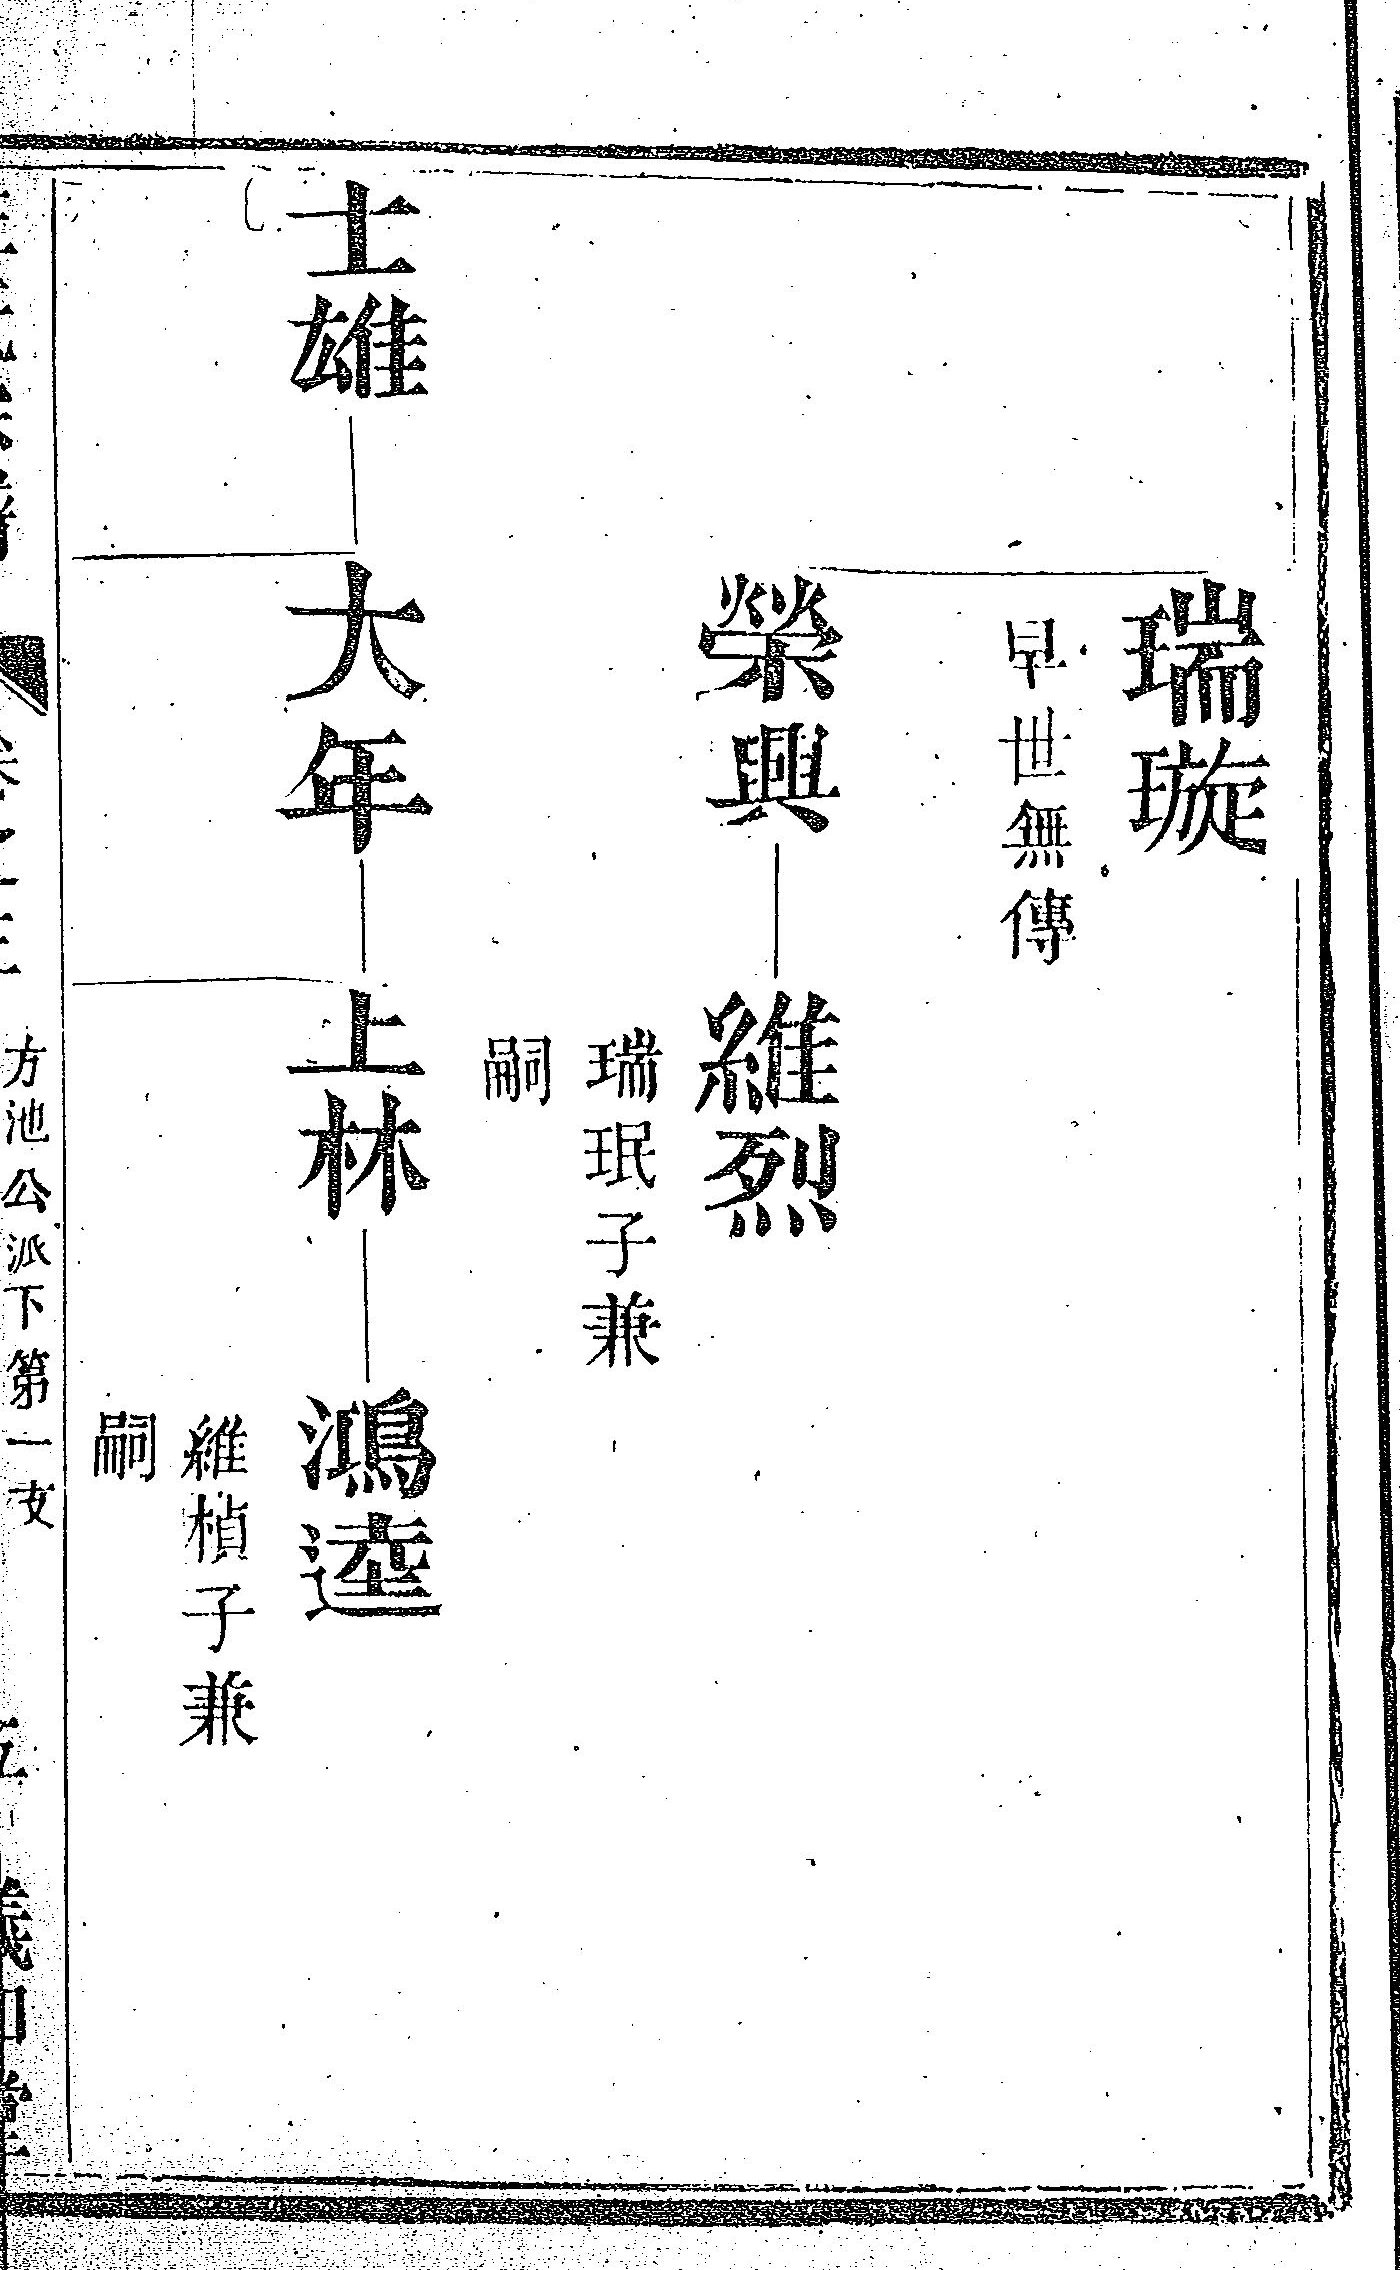 瑞璇
早世無傳
榮興
維烈
瑞珉子兼
嗣
士雄
大年
上林
鴻逵
維楨子兼
嗣
方池公派下第一支